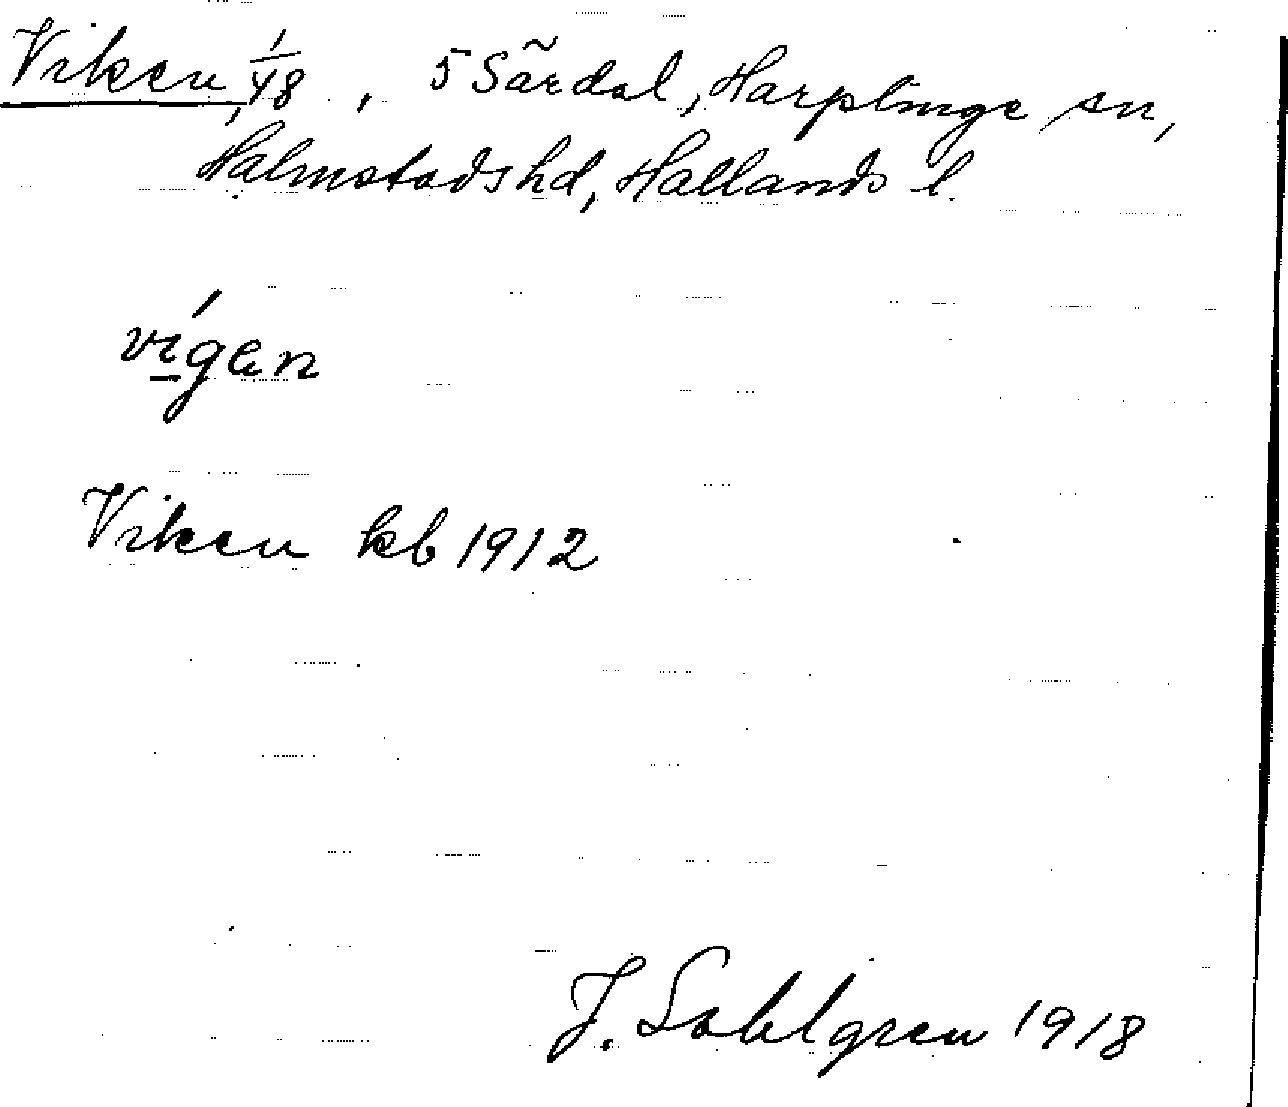 Viken, 1/48, 5 Särdal, Harplinge sn,
Halmstads hd, Hallands l.
vígan
Viken kb 1912
J. Sahlgren 1918